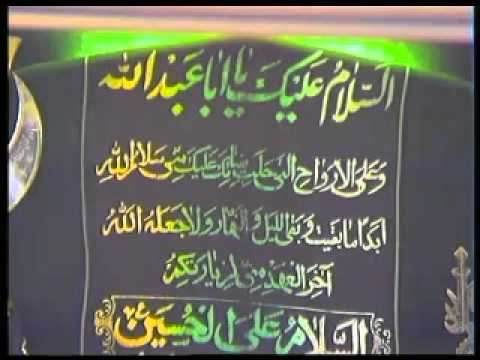 السَّلامُ عَلَيْكَ يا اَبا عَبْدِ اللهِ
وَعَلَى الاَرْواحِ الَّتي حَلَّتْ بِفِنائِكَ عَلَيْكَ مِنّي سَلامُ اللهِ
اَبَدًا ما بَقيتُ وَبَقِيَ اللَّيْلُ وَالنَّهارُ وَلا جَعَلَهُ اللهُ
آخِرَ الْعَهْدِ مِنّي لِزِيارَتِكُمْ
السَّلامُ عَلَى الْحُسَيْنِ ع